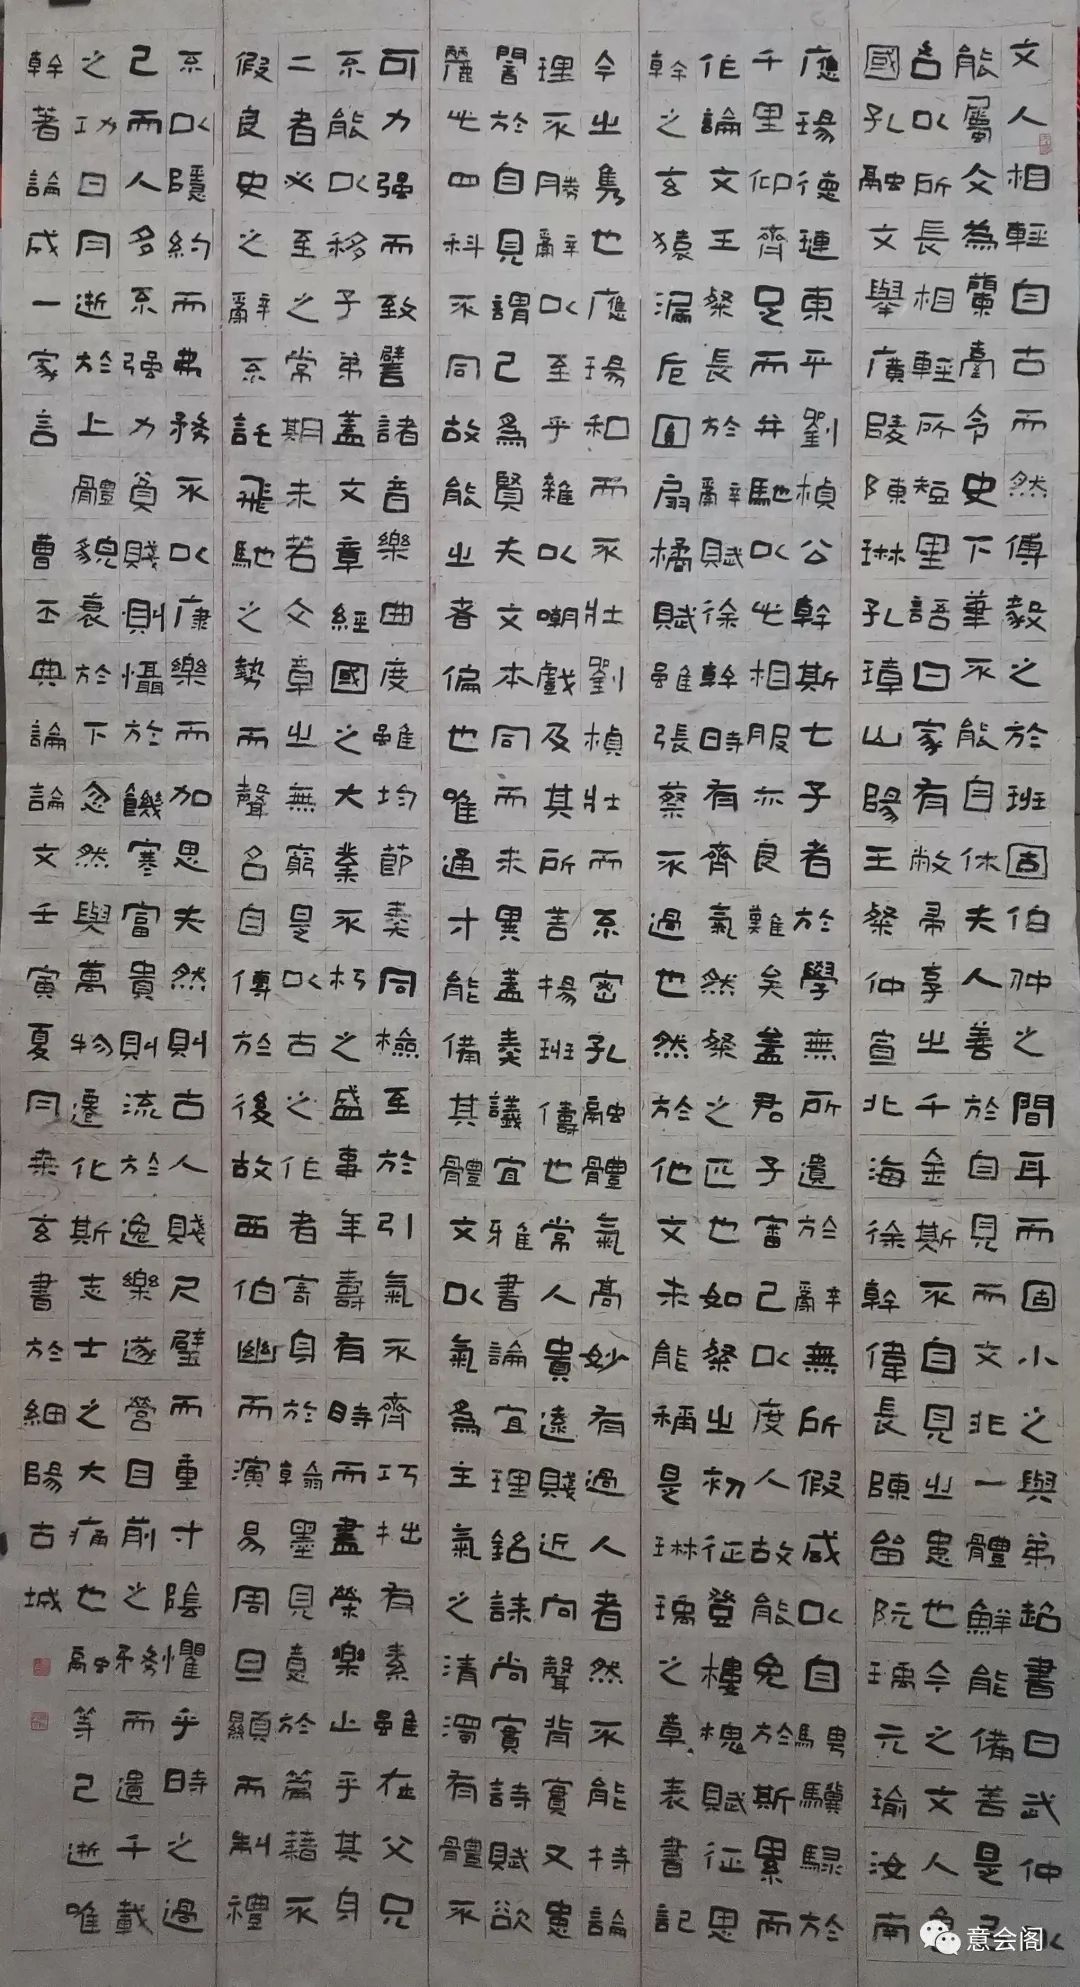 文人相輕自古而然傅毅之於班固伯仲之間耳而固小之與弟超書曰武仲以
能屬文為蘭臺令史下筆不能自休夫人善於自見而文非一體鮮能備善是以
各以所長相輕所短里語曰家有敝帚享之千金斯不自見之患也今之文人
國孔融文舉廣陵陳琳孔璋山陽王粲仲宣北海徐幹偉長陳留阮瑀元瑜汝南
應瑒德璉東平劉楨公幹斯七子者於學無所遺於辭無所假咸以自騁驥騄於
千里仰齊足而並馳以此相服亦良難矣蓋君子審己以度人故能免於斯累而
作論文王粲長於辭賦徐幹時有齊氣然粲之匹也如粲之初征登樓槐賦征思
幹之玄猿漏卮圓扇橘賦雖張蔡不過也然於他文未能稱是琳瑀之章表書記
今之雋也應瑒和而不壯劉楨壯而不密孔融體氣高妙有過人者然不能持論
理不勝辭以至乎雜以嘲戲及其所善揚班儔也常人貴遠賤近向聲背實又患
闇於自見謂己為賢夫文本同而末異蓋奏議宜雅書論宜理銘誄尚實詩賦欲
麗此四科不同故能之者偏也唯通才能備其體文以氣為主氣之清濁有體不
可力強而致譬諸音樂曲度雖均節奏同檢至於引氣不齊巧拙有素雖在父兄
不能以移子弟蓋文章經國之大業不朽之盛事年壽有時而盡榮樂止乎其身
二者必至之常期未若文章之無窮是以古之作者寄身於翰墨見意於篇籍不
假良史之辭不託飛馳之勢而聲名自傳於後故西伯幽而演易周旦顯而制禮
不以隱約而弗務不以康樂而加思夫然則古人賤尺璧而重寸陰懼乎時之過
己而人多不強力貧賤則懾於饑寒富貴則流於逸樂遂營目前之務而遺千載
之功日月逝於上體貌衰於下忽然與萬物遷化斯志士之大痛也融等已逝唯
幹著論成一家言 曹丕典論論文壬寅夏月玄書於細陽古城
意会阁